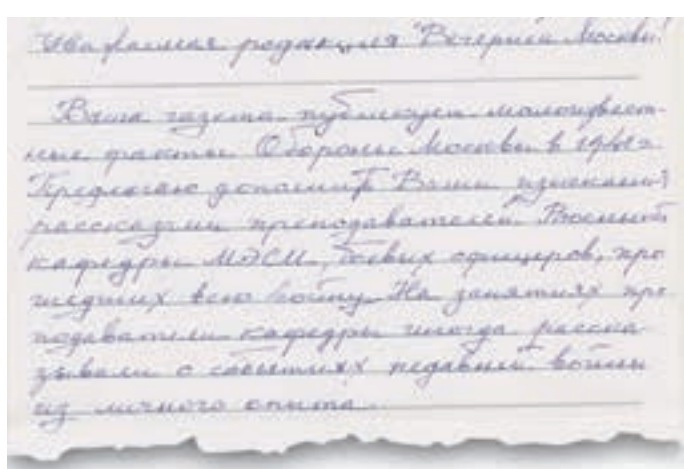 Уважаемая редакция "Вечерней Москвы!
Ваша газета публикует малоизвест-
ные факты Обороны Москвы в 1941г.
Предлагаю дополнить Ваши изыскания
рассказами преподавателей Военной
кафедры МЭСИ, боевых офицеров, про
шедших всю войну. На занятиях пре
подаватели кафедры иногда расска-
зывали о событиях недавней войны
из личного опыта.